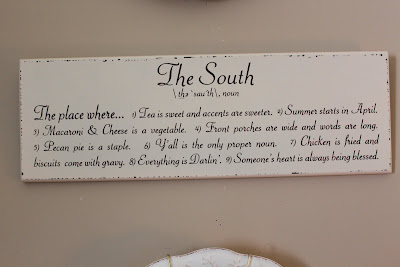 The South
\ thə ˈsau̇th \, noun
The place where... 1) Tea is sweet and accents are sweeter. 2) Summer starts in April.
3) Macaroni & Cheese is a vegetable. 4) Front porches are wide and words are long.
5) Pecan pie is a staple. 6) Y'all is the only proper noun. 7) Chicken is fried and
biscuits come with gravy. 8) Everything is Darlin'. 9) Someone's heart is always being blessed.